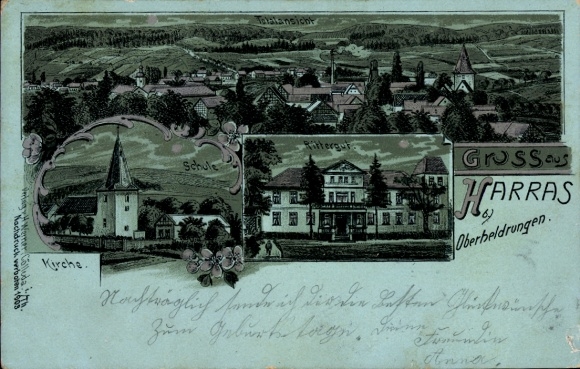 Totalansicht
Schule
Kirche.
Rittergut.
Gruss aus
HARRAS
b/
Oberheldrungen.
Nachdruck verboten 1908
Nachträglich sende ich dir die besten Glückwünsche
zum Geburtstage. Deine
Freundin
Anna.